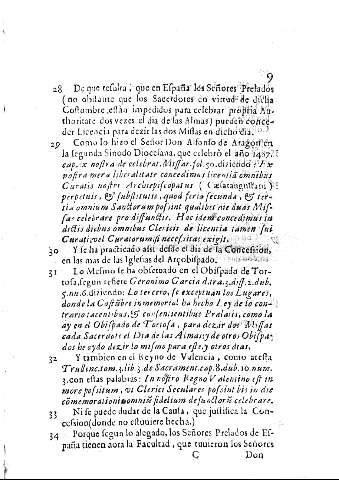 9
28 De que resulta, que en España los Señores Prelados
(no obstante que los Sacerdotes en virtud de dicha
Costumbre, estàn impedidos para celebrar propria Au-
thoritate dos vezes el dia de las Almas) pueden conce-
der Licencia para dezir las dos Missas en dicho dia.
29 Como lo hizo el Señor Don Alfonso de Aragon en
la segunda Sinodo Diocesana, que celebrò el año 1487.
cap. ex nostra de celebrat. Missar. fol. 30. diziendo: Ex
nostra mera liberalitate concedimus licentiã omnibus
Curatis nostri Archiepiscopatus (Cæsaraugustani)
perpetuis, & substitutis, quod feria secunda, & ter-
tia omnium Sanctorum possint qualibet die duas Mis-
sas celebrare pro defunctis. Hoc idem concedimus in
dictis diebus omnibus Clericis de licentia tamen sui
Curati, vel Curatorum, si necessitas exigit.
30 Y se ha practicado assi desde el dia de la Concession,
en las mas de las Iglesias del Arçobispado.
31 Lo Mesmo se ha observado en el Obispado de Tor-
tosa, segun refiere Geronimo Garcia d.tra.3.diff.2.dub.
5.nu.6. diziendo: Lo tercero, se exceptuan los Lugares,
donde la Costũbre inmemorial ha hecho Ley de lo con-
trario tacentibus, & consentientibus Prælatis, como la
ay en el Obispado de Tortosa, para dezir dos Missas
cada Sacerdote el Dia de las Almas, y de otros Obispa-
dos he oydo dezir lo mismo para este, y otros dias.
32 Y tambien en el Reyno de Valencia, como atesta
Trullinc. tom. 3. lib. 3. de Sacrament. cap. 8. dub. 10. num.
3. con estas palabras: In nostro Regno Valentino est in
more positum, ut Clerici Seculares possint bis in die
cõmemorationi omniũ fidelium defunctorũ celebrare.
33 Ni se puede dudar de la Causa, que justifica la Con-
cession (donde no estuviere hecha.)
34 Porque segun lo alegado, los Señores Prelados de Es-
paña tienen aora la Facultad, que tuvieron los Señores
C Don